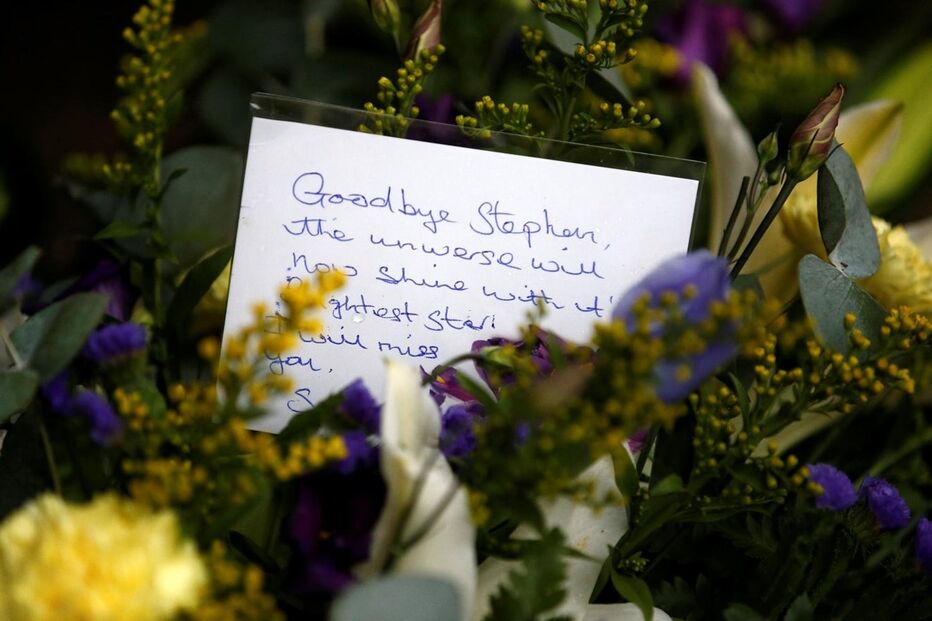 Goodbye Stephen,
the universe will
now shine with it'
brightest star!
I will miss
you,
S